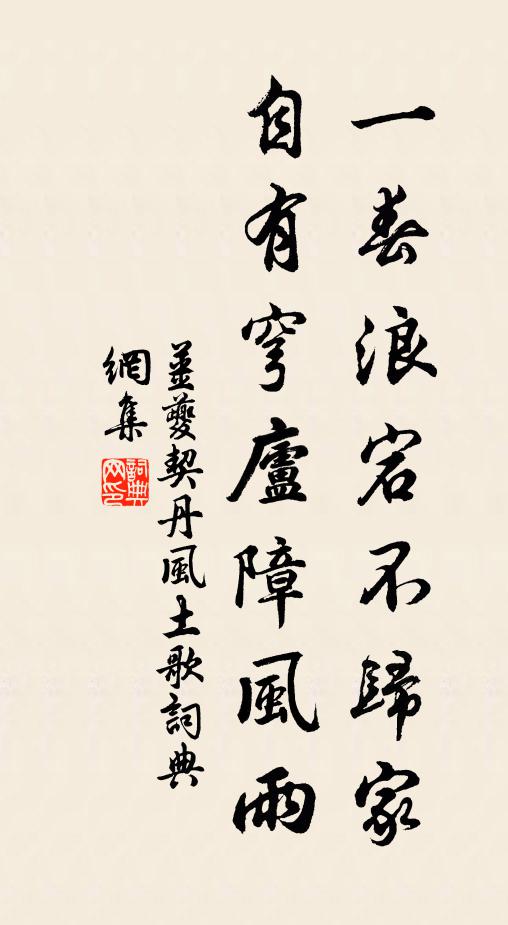 一春浪宕不歸家
自有穹廬障風雨
姜夔契丹風土歌詞典
網集
詞典網印